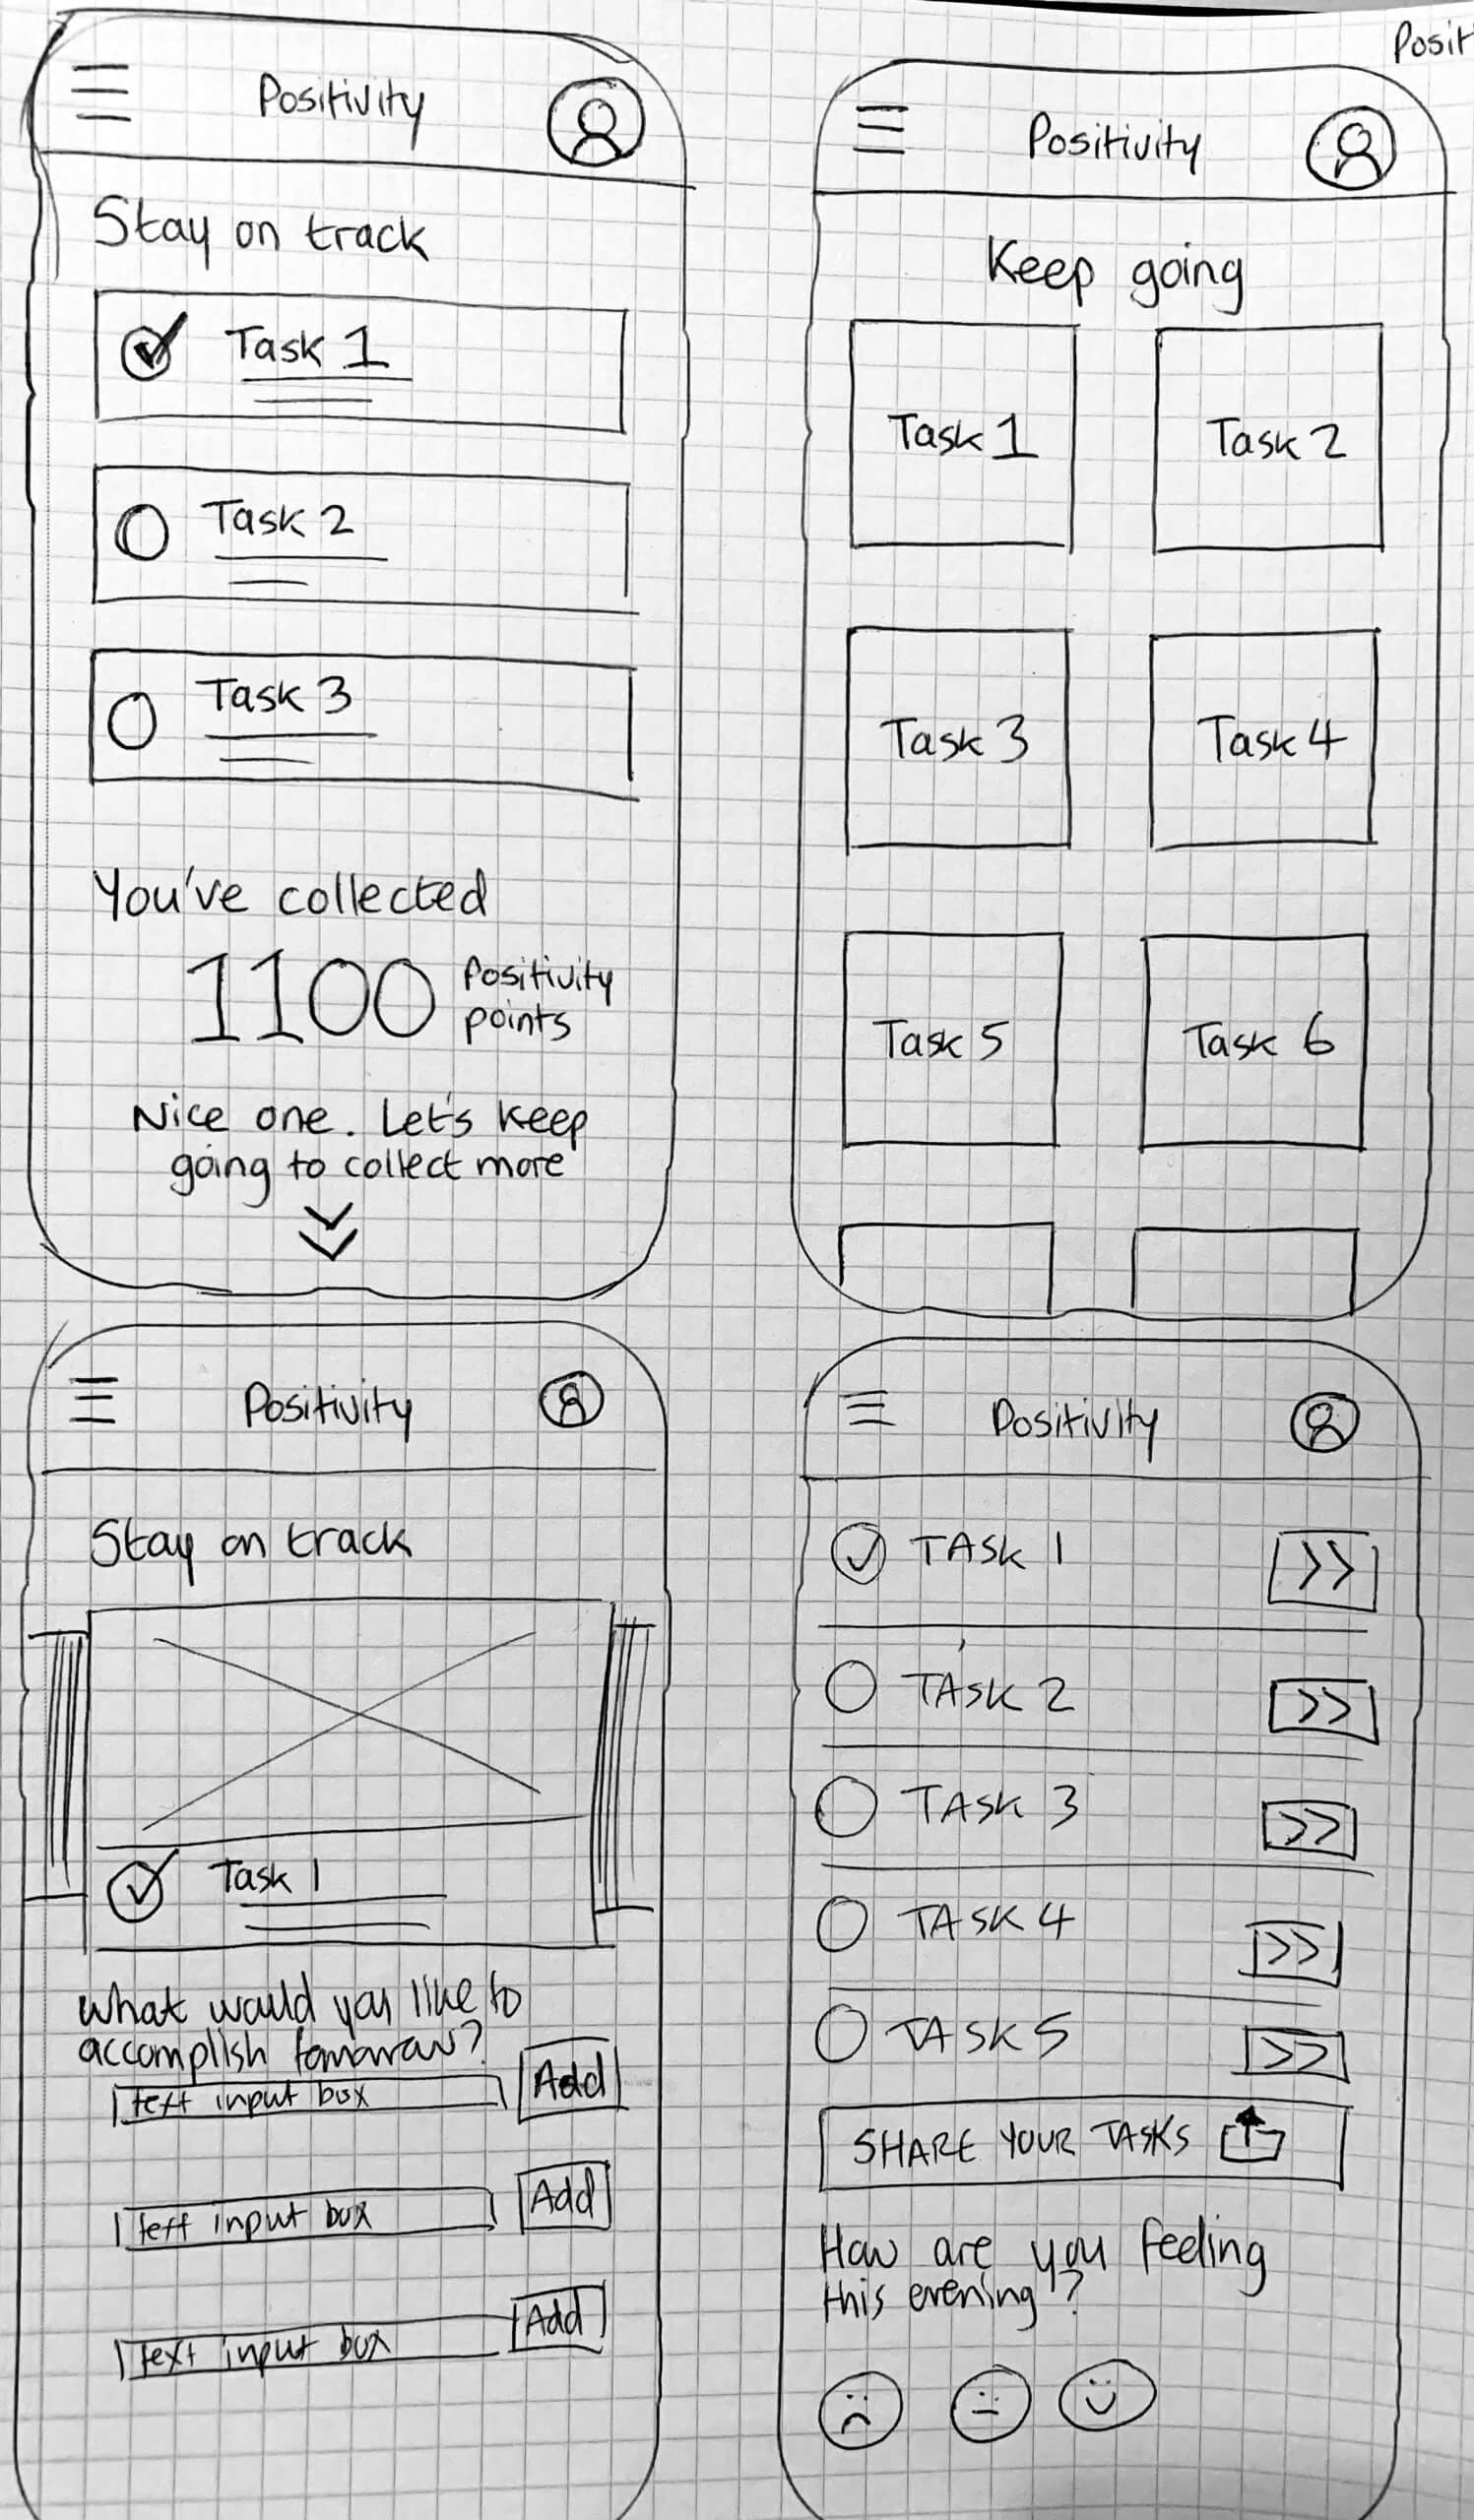 Posit
Positivity
Stay on track
Task 1
Task 2
Task 3
You've collected
1100 Positivity points
Nice one. Let's keep
going to collect more
Positivity
Keep going
Task 1 Task 2
Task 3 Task 4
Task 5 Task 6
Positivity
Stay on track
Task 1
What would you like to
accomplish tomorrow?
text input box Add
text input box Add
text input box Add
Positivity
TASK 1 >>
TASK 2 >>
TASK 3 >>
TASK 4 >>
TASK 5 >>
SHARE YOUR TASKS
How are you feeling
this evening?